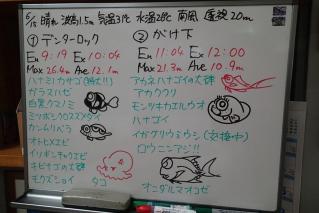 6/15 晴れ 波高1.5m 気温31℃ 水温28℃ 南風 透視20m
① デンターロック
En 9:19 Ex 10:04
Max 26.4m Ave 12.1m
ハナミノカサゴ
ガラスハゼ
白黒クマノミ
ミツボシクロスズメダイ
カンムリベラ
オトヒメエビ
イソギンチャクエビ
キビナゴの大群
キクズショイ
タコ
② がけ下
En 11:04 Ex 12:00
Max 21.3m Ave 10.9m
アカネハナゴイの大群
アカククリ
モンツキカエルウオ
ハナゴイ
イガグリウミウシ(交接中)
ロウニンアジ!!
オニダルマオコゼ